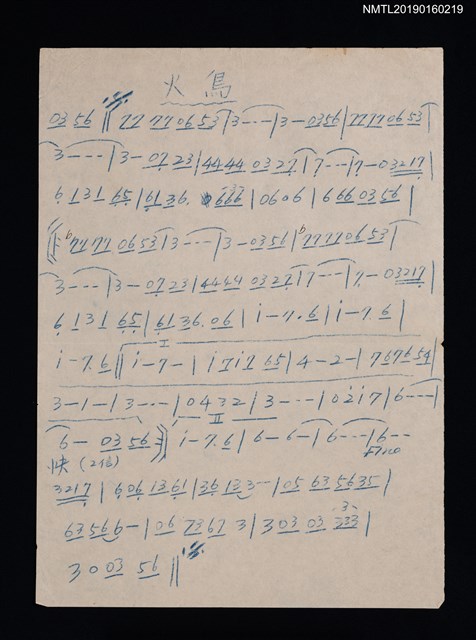 NMTL20190160219
火鳥
03 56 ‖ 77 77 06 53 | 3 - - - | 3 - 0356 | 7777 06 53 |
3 - - - | 3 - 07 23 | 4444 03 27 | 7 - - - | 7 - 03217 |
6 1 3 1 65 | 61 36. 666 | 0606 | 666 03 56 |
‖: b7777 06 53 | 3 - - - | 3 - 0356 | b7777 06 53 |
3 - - - | 3 - 07 23 | 4444 03 27 | 7 - - - | 7 - 03217 |
6 1 3 1 65 | 61 36. 06 | i - 7. 6 | i - 7. 6 |
I
i - 7. 6 ‖ i - 7 - | i7i7 65 | 4 - 2 - | 7 67 6 54 |
3 - 1 - | 3 - - - | 0432 | 3 - - - | 02i7 | 6 - - - |
II
6 - 03 56 :‖ i - 7. 6 | 6 - 6 - | 6 - - - | 6 - -
快 (2倍) Fine
3217 | 606 1361 | 36 13 3 - - | 05 63 5635 |
63 56 6 - | 06 7367 3 | 3 03 03 333 |
3 0 03 56 ‖